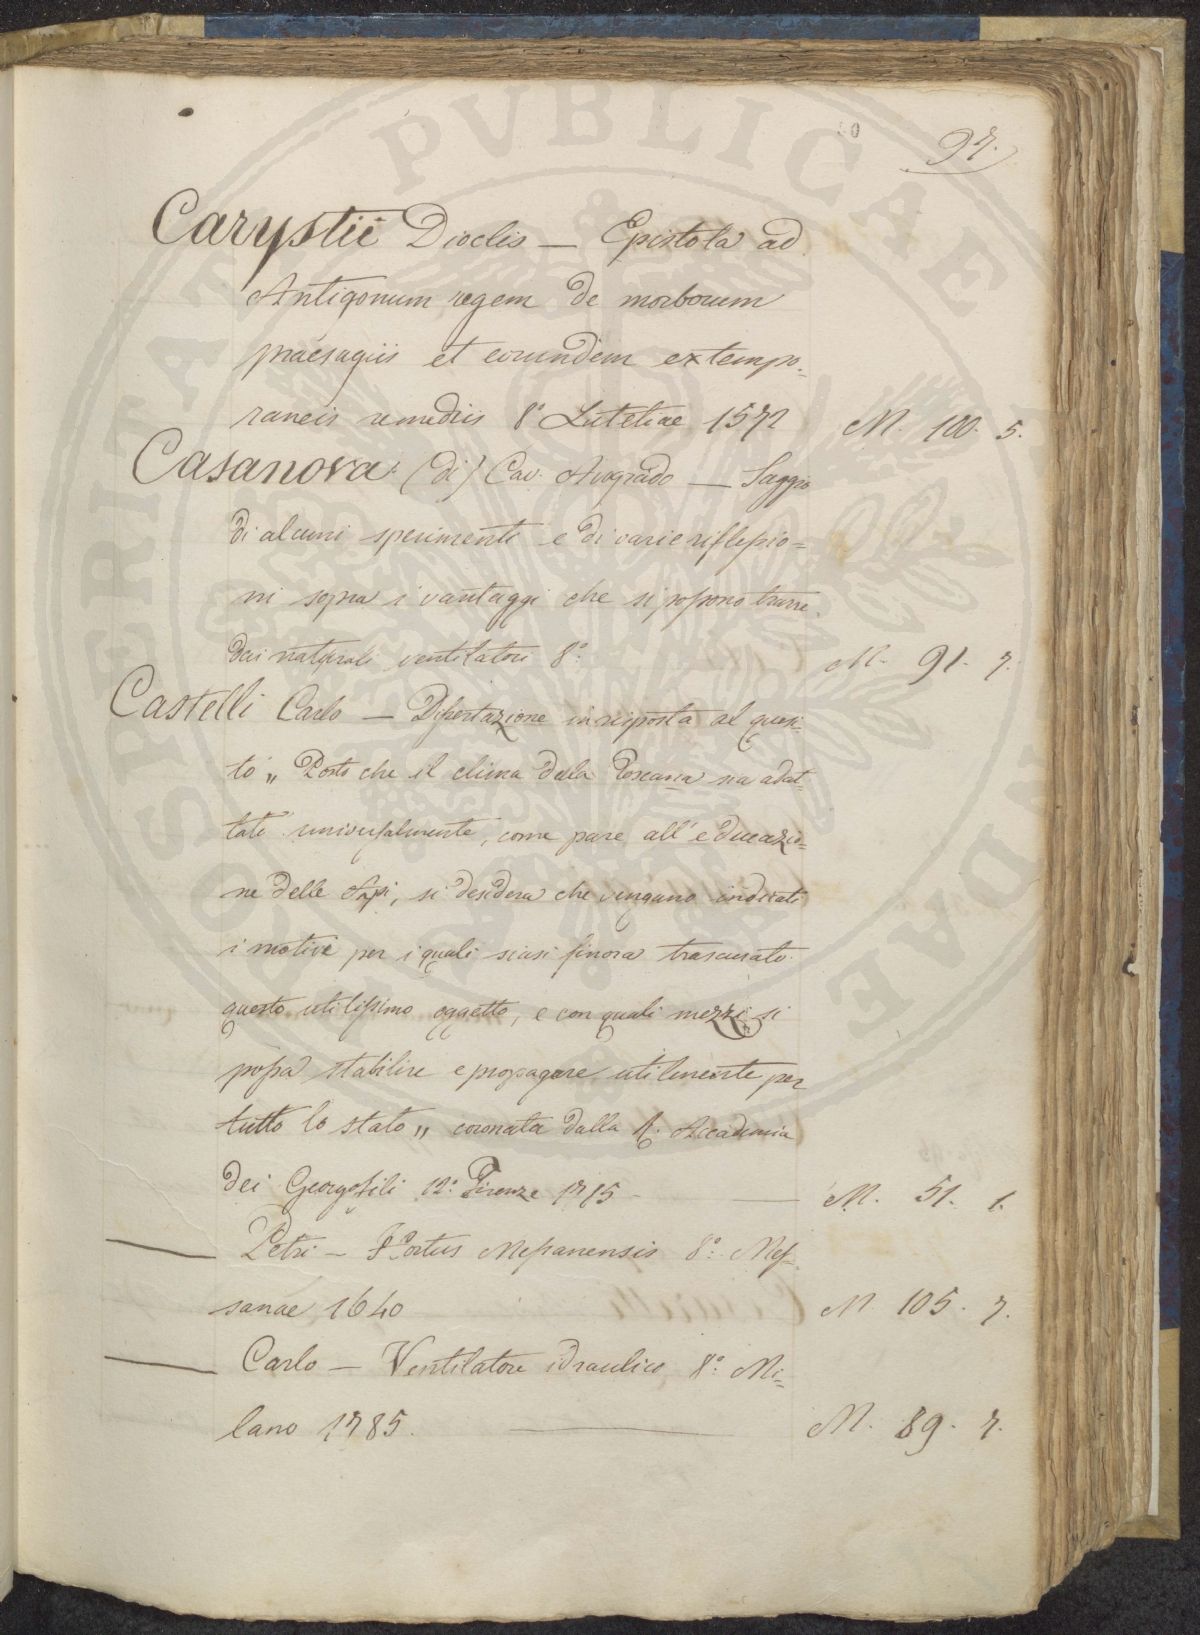 50
97.
Carystii Dioclis — Epistola ad
Antigonum regem de morborum
praesagiis et eorumdem extempo-
raneis remediis 8° Lutetiae 1572 M. 100. 5.
Casanova (di) Cav. Avogrado — Saggio
di alcuni sperimenti e di varie riflessio=
ni sopra i vantaggi che si possono trarre
dai naturali ventilatori 8° M. 91. 7.
Castelli Carlo — Dissertazione in risposta al quesi-
to „ Posto che il clima della Toscana sia adat-
tato universalmente, come pare all' educazio=
ne delle Api, si desidera che vengano indicati
i motivi per i quali siasi finora trascurato
questo utilissimo oggetto, e con quali mezzi si
possa stabilire e propagare utilmente per
tutto lo stato „ coronata dalla R. Accademia
dei Georgofili 12° Firenze 1785 — M. 51. 1.
— Petri — Hortus Messanensis 8° Mes-
sanae 1640 M 105. 7.
— Carlo — Ventilatore idraulico 8° Mi=
lano 1785. — M. 89. 7.
PROSPERITATI PVBLICAE AVGENDAE